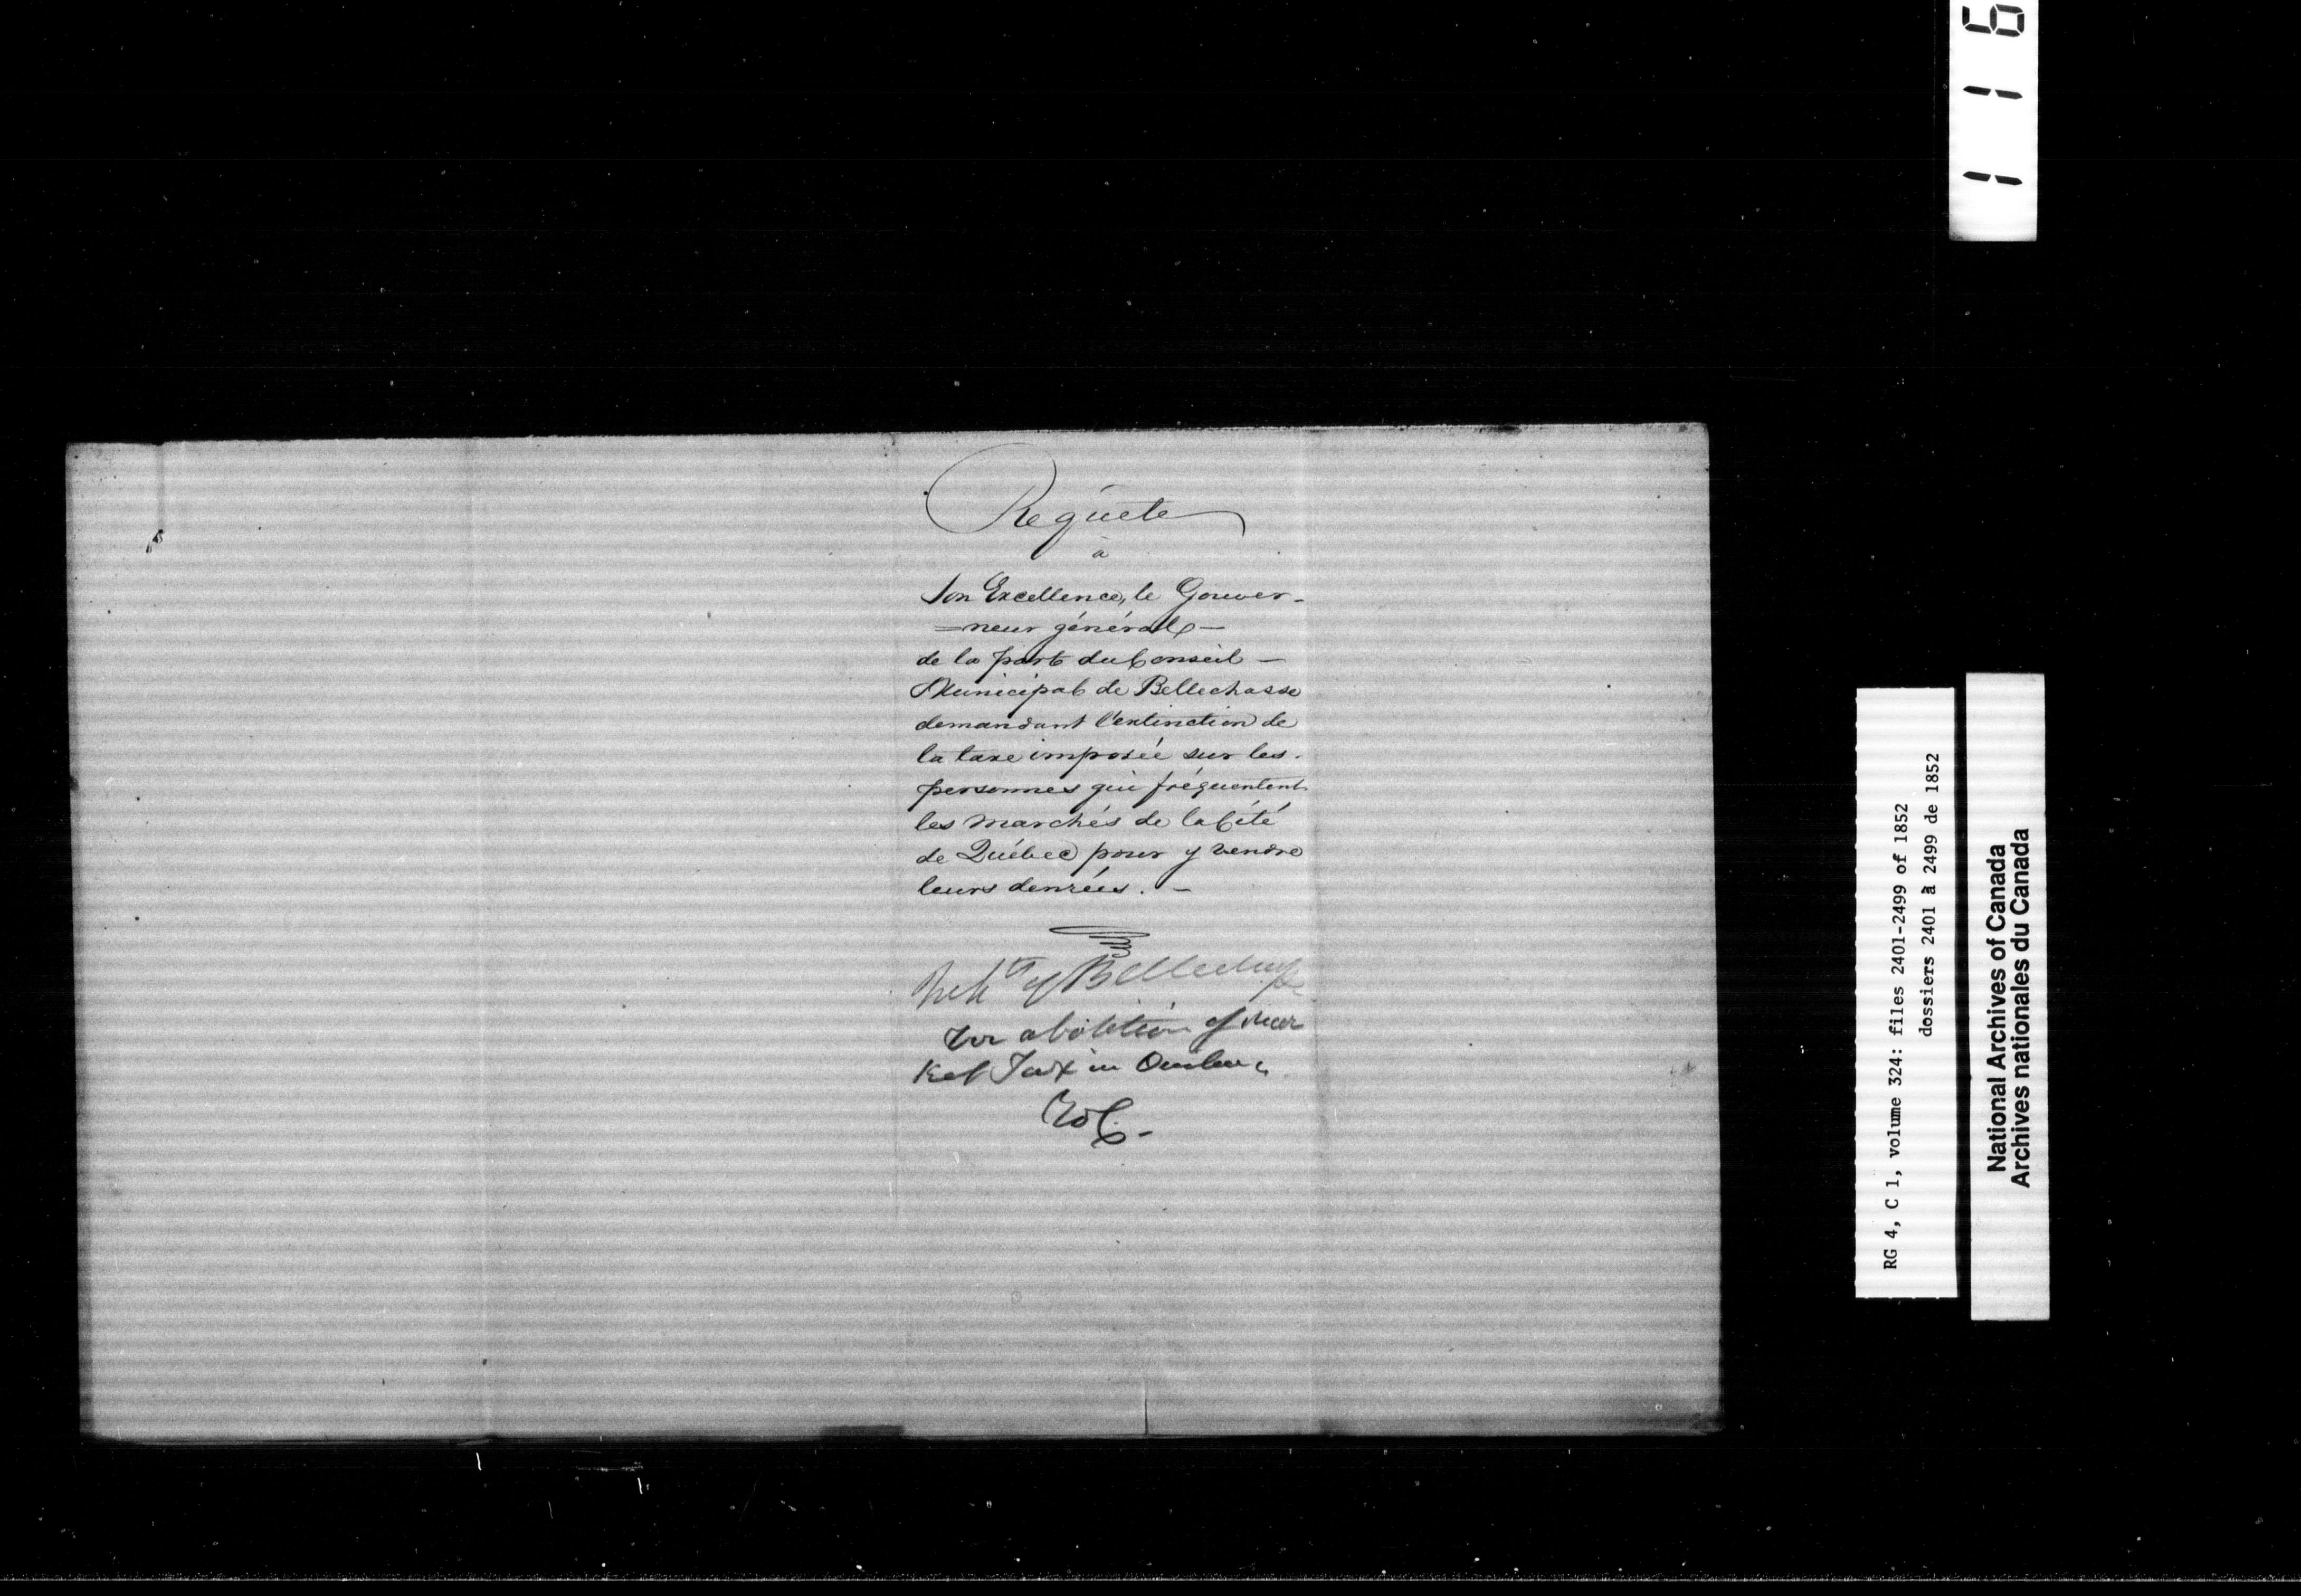 Requête
à
Son Excellence, le Gouver-
=neur général —
de la part du Conseil —
Municipal de Bellechasse
demandant l'extinction de
la taxe imposée sur les
personnes qui fréquentent
les marchés de la Cité
de Québec pour y vendre
leurs denrées. —
of Bellechasse
for abolition of Mar
ket Tax in Quebec
116
RG 4, C 1, volume 324: files 2401-2499 of 1852
dossiers 2401 à 2499 de 1852
National Archives of Canada
Archives nationales du Canada